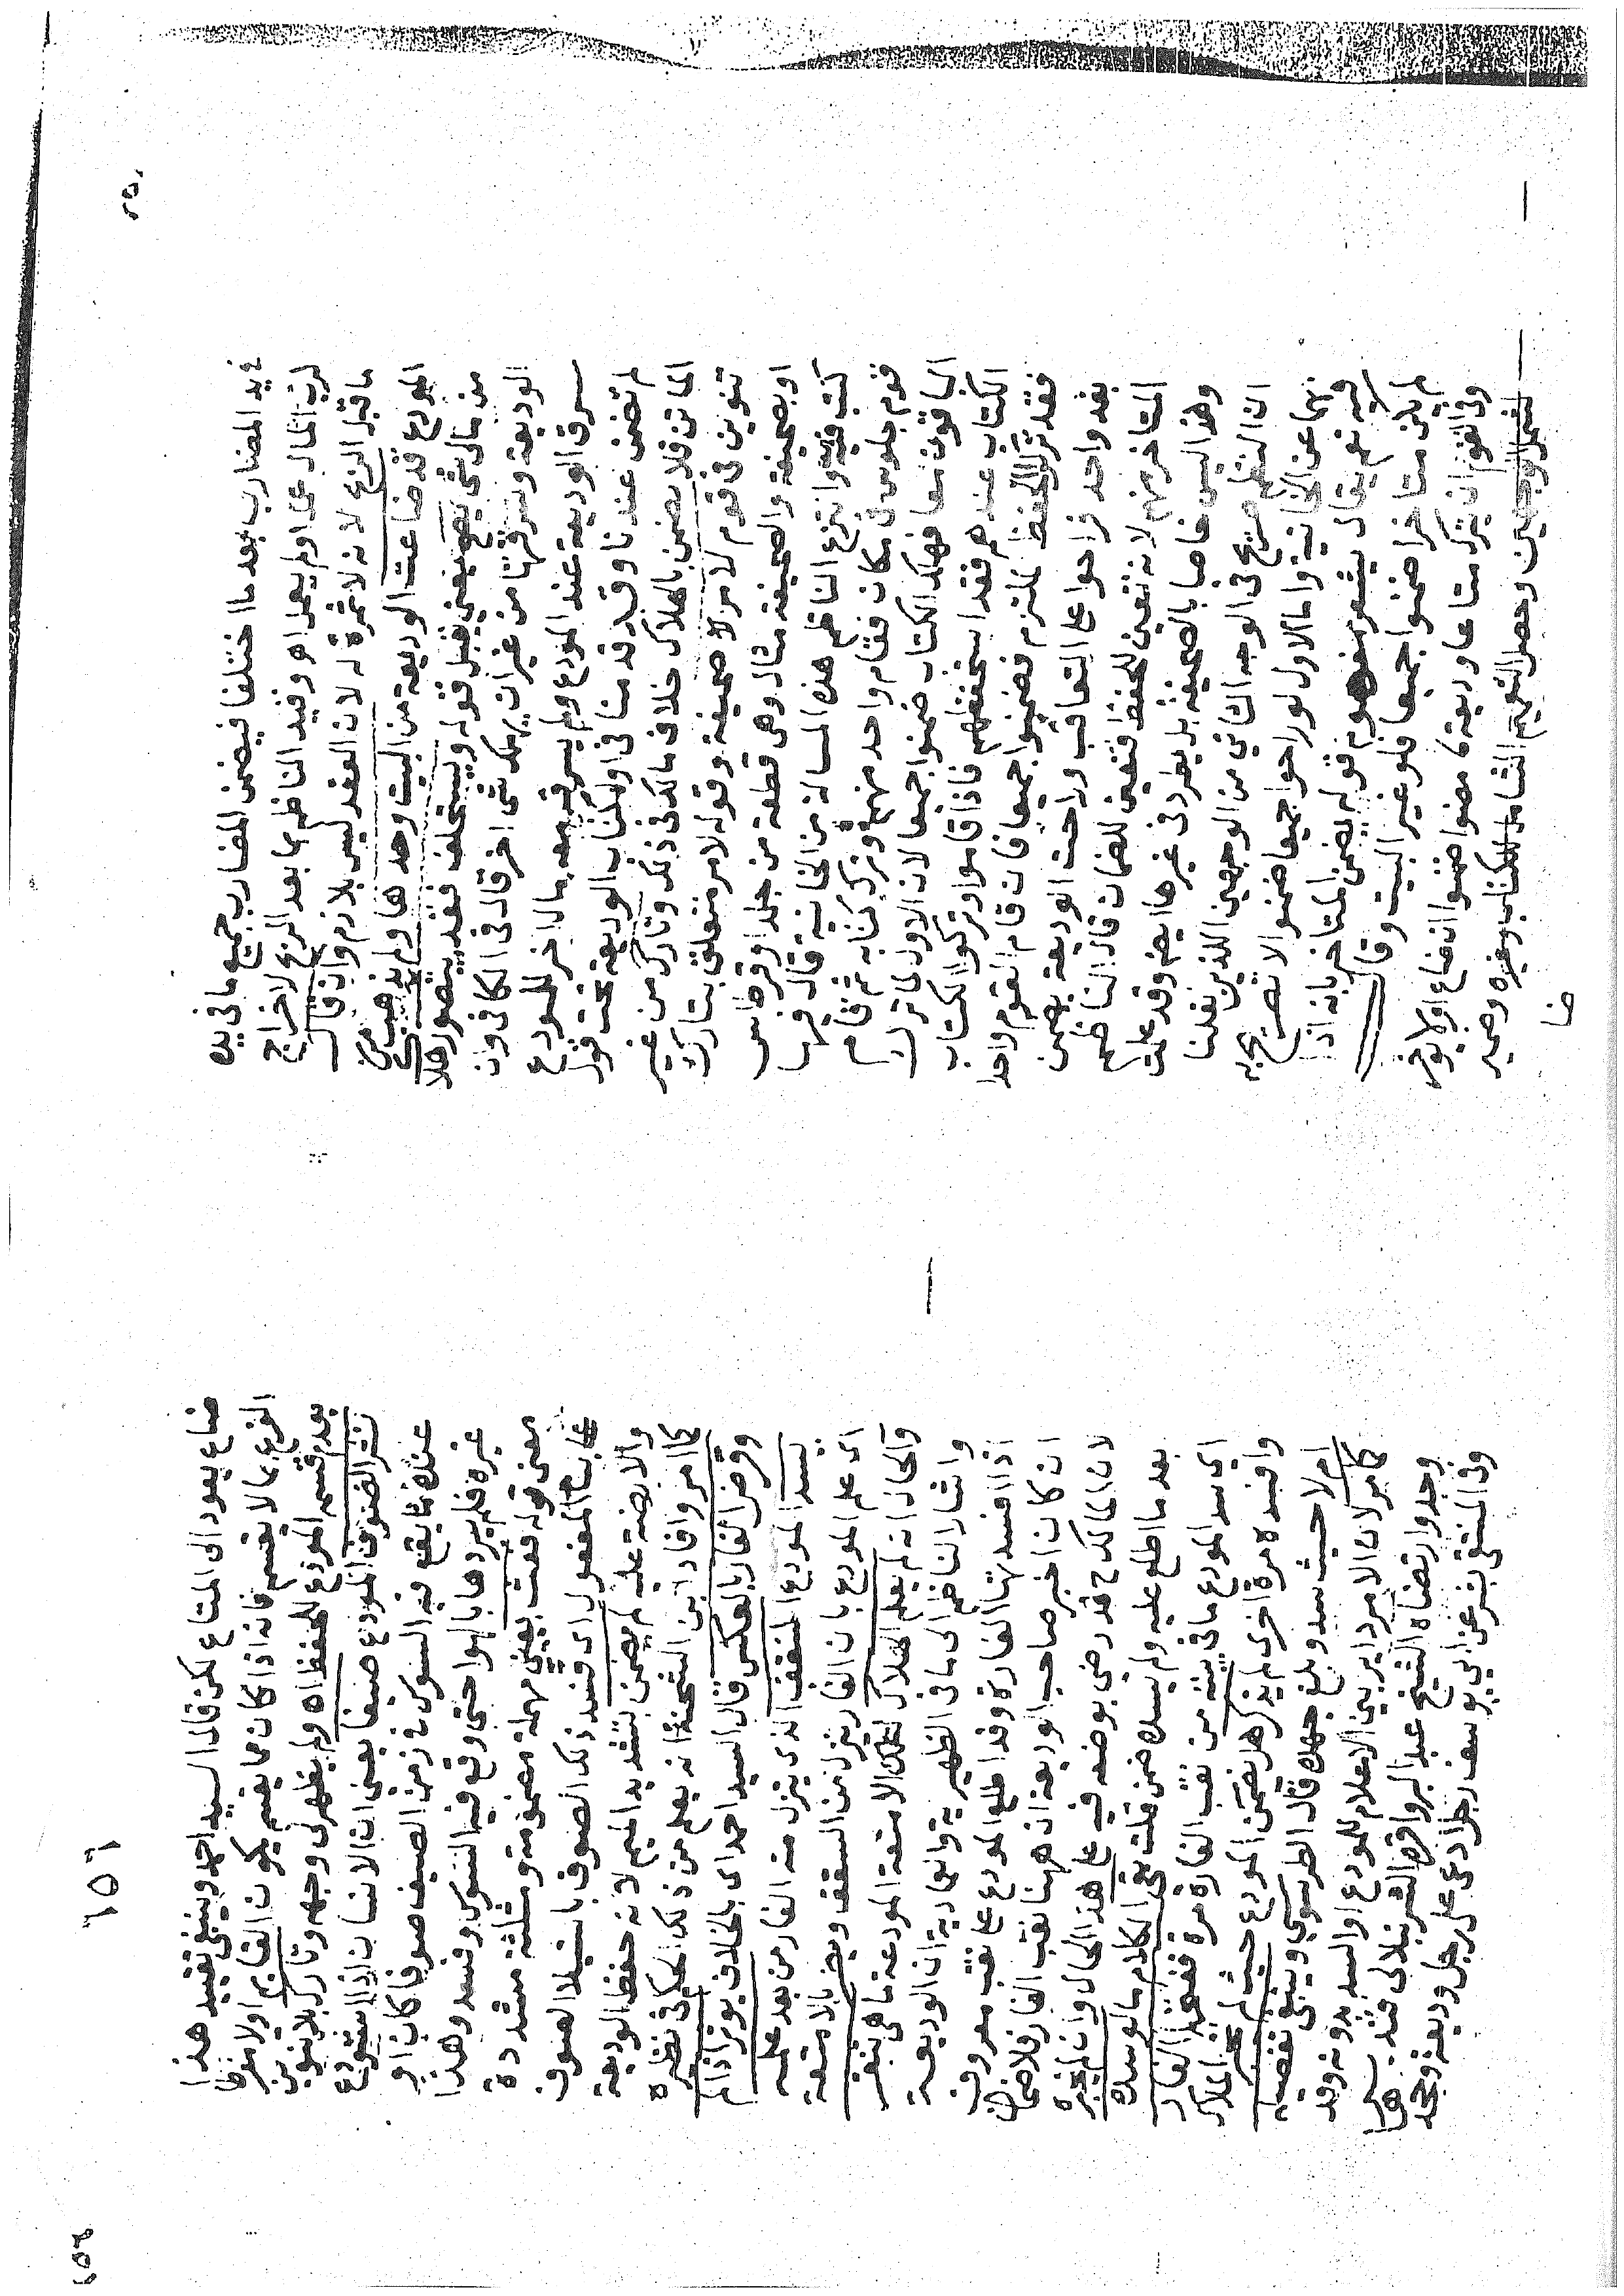 ٢٥٠
في يد المضارب بعد ما اختلفا فيضمن المضارب جميع ما في يده
لرب المال عملا ولم يعمل اهـ وقيد الناظم بما بعد الربح لاخراج
ما قبل الربح لانه لا ثمرة له لان العقد ليس بلازم وان قال
المودع قد ضاعت الوديعة من البيت وحدها ولم يذهب
من مالي شي يصح يعني يقبل قوله ويستحلف فقد يتصور
الوديعة وسرقتها من غير ان يهلك شي اخر قال في الكافي وان
سرق الوديعة عند المودع ولم يسرق معه مال اخر للمودع
لم تضمن عندنا وقد قدمنا في اول كتاب الوديعة تحت قول
الماتن فلا يضمن بالهلاك خلاف مالك في ذلك وتارك من غير
تنوين في قوم لامر لا صحيفة وقوله لامر متعلق بتارك
او بصحيفة والصحيفة مثال وهي قطعة من جلد او قرطاس
كتب فيه وانتزع الناظم هذه المسالة من الخانية قال فيها
قوم جلوس في مكان فقام واحد منهم وترك كتابه ثم قام
الباقون معا فهلك الكتاب ضمنوا جميعا لان الاول لما ترك
الكتاب عندهم فقد استحفظهم فاذا قاموا وتركوا الكتاب
فقد تركوا الحفظ الملتزم فضمنوا جميعا فان قام القوم واحدا
بعد واحد فراحوا على التعاقب وراحت الوديعة يضمن
المتاخر منهم لانه تعين للحفظ فتعين للضمان قال الناظم
وهذا ليس خاصا بالصحيفة بل يطرد في غيرها ايضا وقد علمت
ان النظم صريح في الوجه الثاني من الوجهين اللذين نقلنا
نهما عن الخانية واما الاول لو راحوا جميعا ضمنوا لا تصريح به
فيه نعم يقال يشعر مفهوم قوله يضمن المتاخر بانه اذا
لم يكن متاخرا ضمنوا جميعا فلو غير البيت وقال
وفي القوم ان يترك متاعا وديعة مضوا ضمنوا ان ضاع او لا يؤخر
لشمل الوجهين وحصل التعميم الشامل للكتاب وغيره وضمير
ضا
٢٥١
ضاع يعود الى المتاع لكن قال السيد احمد وينبغي تقييد هذا
الفرع بما لا تقسم فانه اذا كان مما يقسم يكون القايم اولا مفرطا
بعدم قسمه المودع للحفظ اهـ ولم يظهر لي وجهه وتارك بلا تنوين
نشر الصوف المودع صيفا يعني ان الانسان اذا استودع
عنده ما يقع فيه السوس في زمن الصيف صوفا كان او
غيره فلم يبردها بالهوا حتى وقع فيه السوس وفسد وهذا
معنى قوله فعث بعين مهملة مضمومة ومثلثة مشددة
على بناء المفعول اي فسد ذلك الصوف باستيلا الصوف
والارضة عليه لم يضمن بتشديد الميم لانه حفظ الوديعة
كما امر وافاد ابن الشحنة انه يعلم من ذلك الحكم في نظيره
وقرض الفار بالعكس قال السيد احمد اي بالخلاف يوثر اذا لم
يسد المودع المنقف الذي ينزل منه الفار من بعد علمه
اي علم المودع بان الفار ينزل من السقف ويضر بالامتعة
والحال انه لم يعلم الملاك لتلك الامتعة المودعة ما هي تنقر
واشار الناظم الى ما في الظهيرية والعمادية ان الوديعة
اذا افسدتها الفارة وقد اطلع المودع على نقب معروف
ان كان اخبر صاحب الوديعة ان ههنا نقب الفار فلا ضمان
لان المالك ح قد رضي بوضعه فيه على هذا الحال وان لم يخبره
بعد ما اطلع عليه ولم يسده ضمن قلت بقي الكلام ما لو سده
اي سد المودع ما في بيته من نقب الفارة مرة ففتحه الفار
وافسده مرة اخرى لم يذكر هل يضمن المودع حيث لم يخبر الملاك
ام لا حيث سد وبلغ جهده قال الطرسوسي وينبغي تفصيله
كما مر لان الامر داير بين الاعلام للمودع او السد بدونه وقد
وجد وارتضاه الشيخ عبد البر واقره الشرنبلالي فتدبر
وفي المنتقى بشر عن ابي يوسف رجل ادعى على رجل وديعة وجحد
٢٥٦